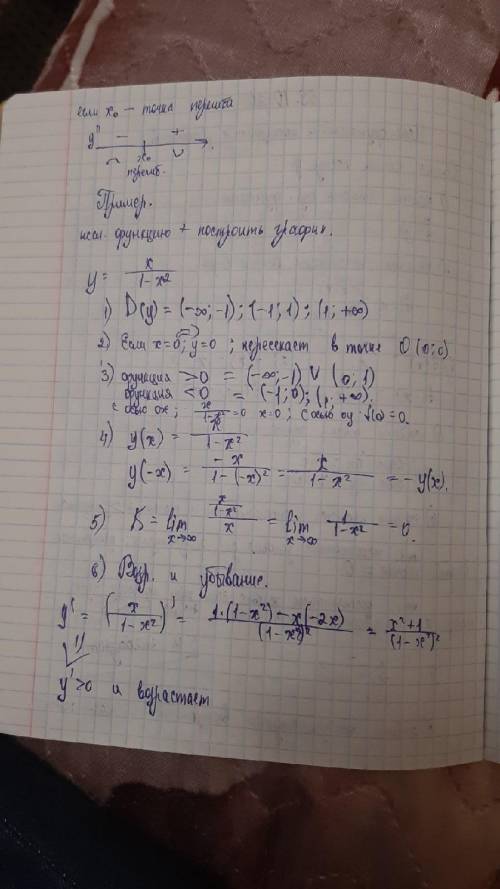 если x₀ – точка перегиба
y'' – +
x₀
перегиб.
Пример.
иссл. функцию + построить график.
y = x/(1-x²)
1) D(y) = (-∞; -1); (-1; 1); (1; +∞)
2) Если x=0; (=>) y=0; пересекает в точке O (0; 0)
3) функция >0 = (-∞; -1) ∨ (0; 1)
функция <0 = (-1; 0); (1; +∞).
с осью ox; x/(1-x²) = 0 x=0; с осью oy f(0)=0.
4) y(x) = x/(1-x²)
y(-x) = -x/(1-(-x)²) = x/(1-x²) = -y(x).
5) K = lim x→∞ (x/(1-x²))/x = lim x→∞ 1/(1-x²) = 0.
6) Возр. и убывание.
y' = (x/(1-x²))' = (1·(1-x²) - x(-2x))/(1-x²)² = (x²+1)/(1-x²)²
y' >0 и возрастает